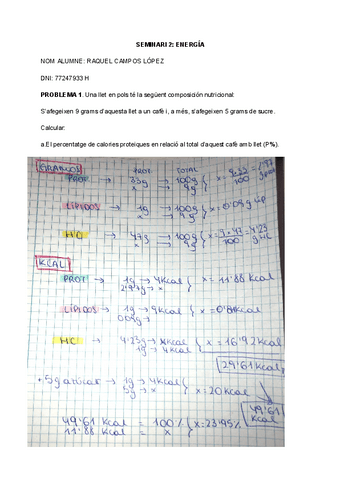 SEMINARI 2: ENERGÍA
NOM ALUMNE: RAQUEL CAMPOS LÓPEZ
DNI: 77247933 H
PROBLEMA 1. Una llet en pols té la següent composición nutricional:
S'afegeixen 9 grams d'aquesta llet a un cafè i, a més, s'afegeixen 5 grams de sucre.
Calcular:
a.El percentatge de calories proteiques en relació al total d'aquest cafè amb llet (P%).
GRAMOS PROT TOTAL
PROT 33g → 100g
x 9g
LÍPIDOS → 1g → 100g x = 0'09g
x 9g
HC → 47g → 100g x = 9·47 / 100 = 4'23
x 9g g HC
KCAL
PROT → 1g → 4Kcal x = 11'88 Kcal
2'97g → x
LÍPIDOS → 1g → 9Kcal
0'09g →
HC → 4'23g → x x = 16'92 Kcal
1g → 4Kcal
29'61 Kcal
+ 5g azúcar → 1g → 4Kcal x = 20 Kcal
5g → x
49'61 Kcal
49'61 Kcal = 100% x = 23'95%
11'88 Kcal = x